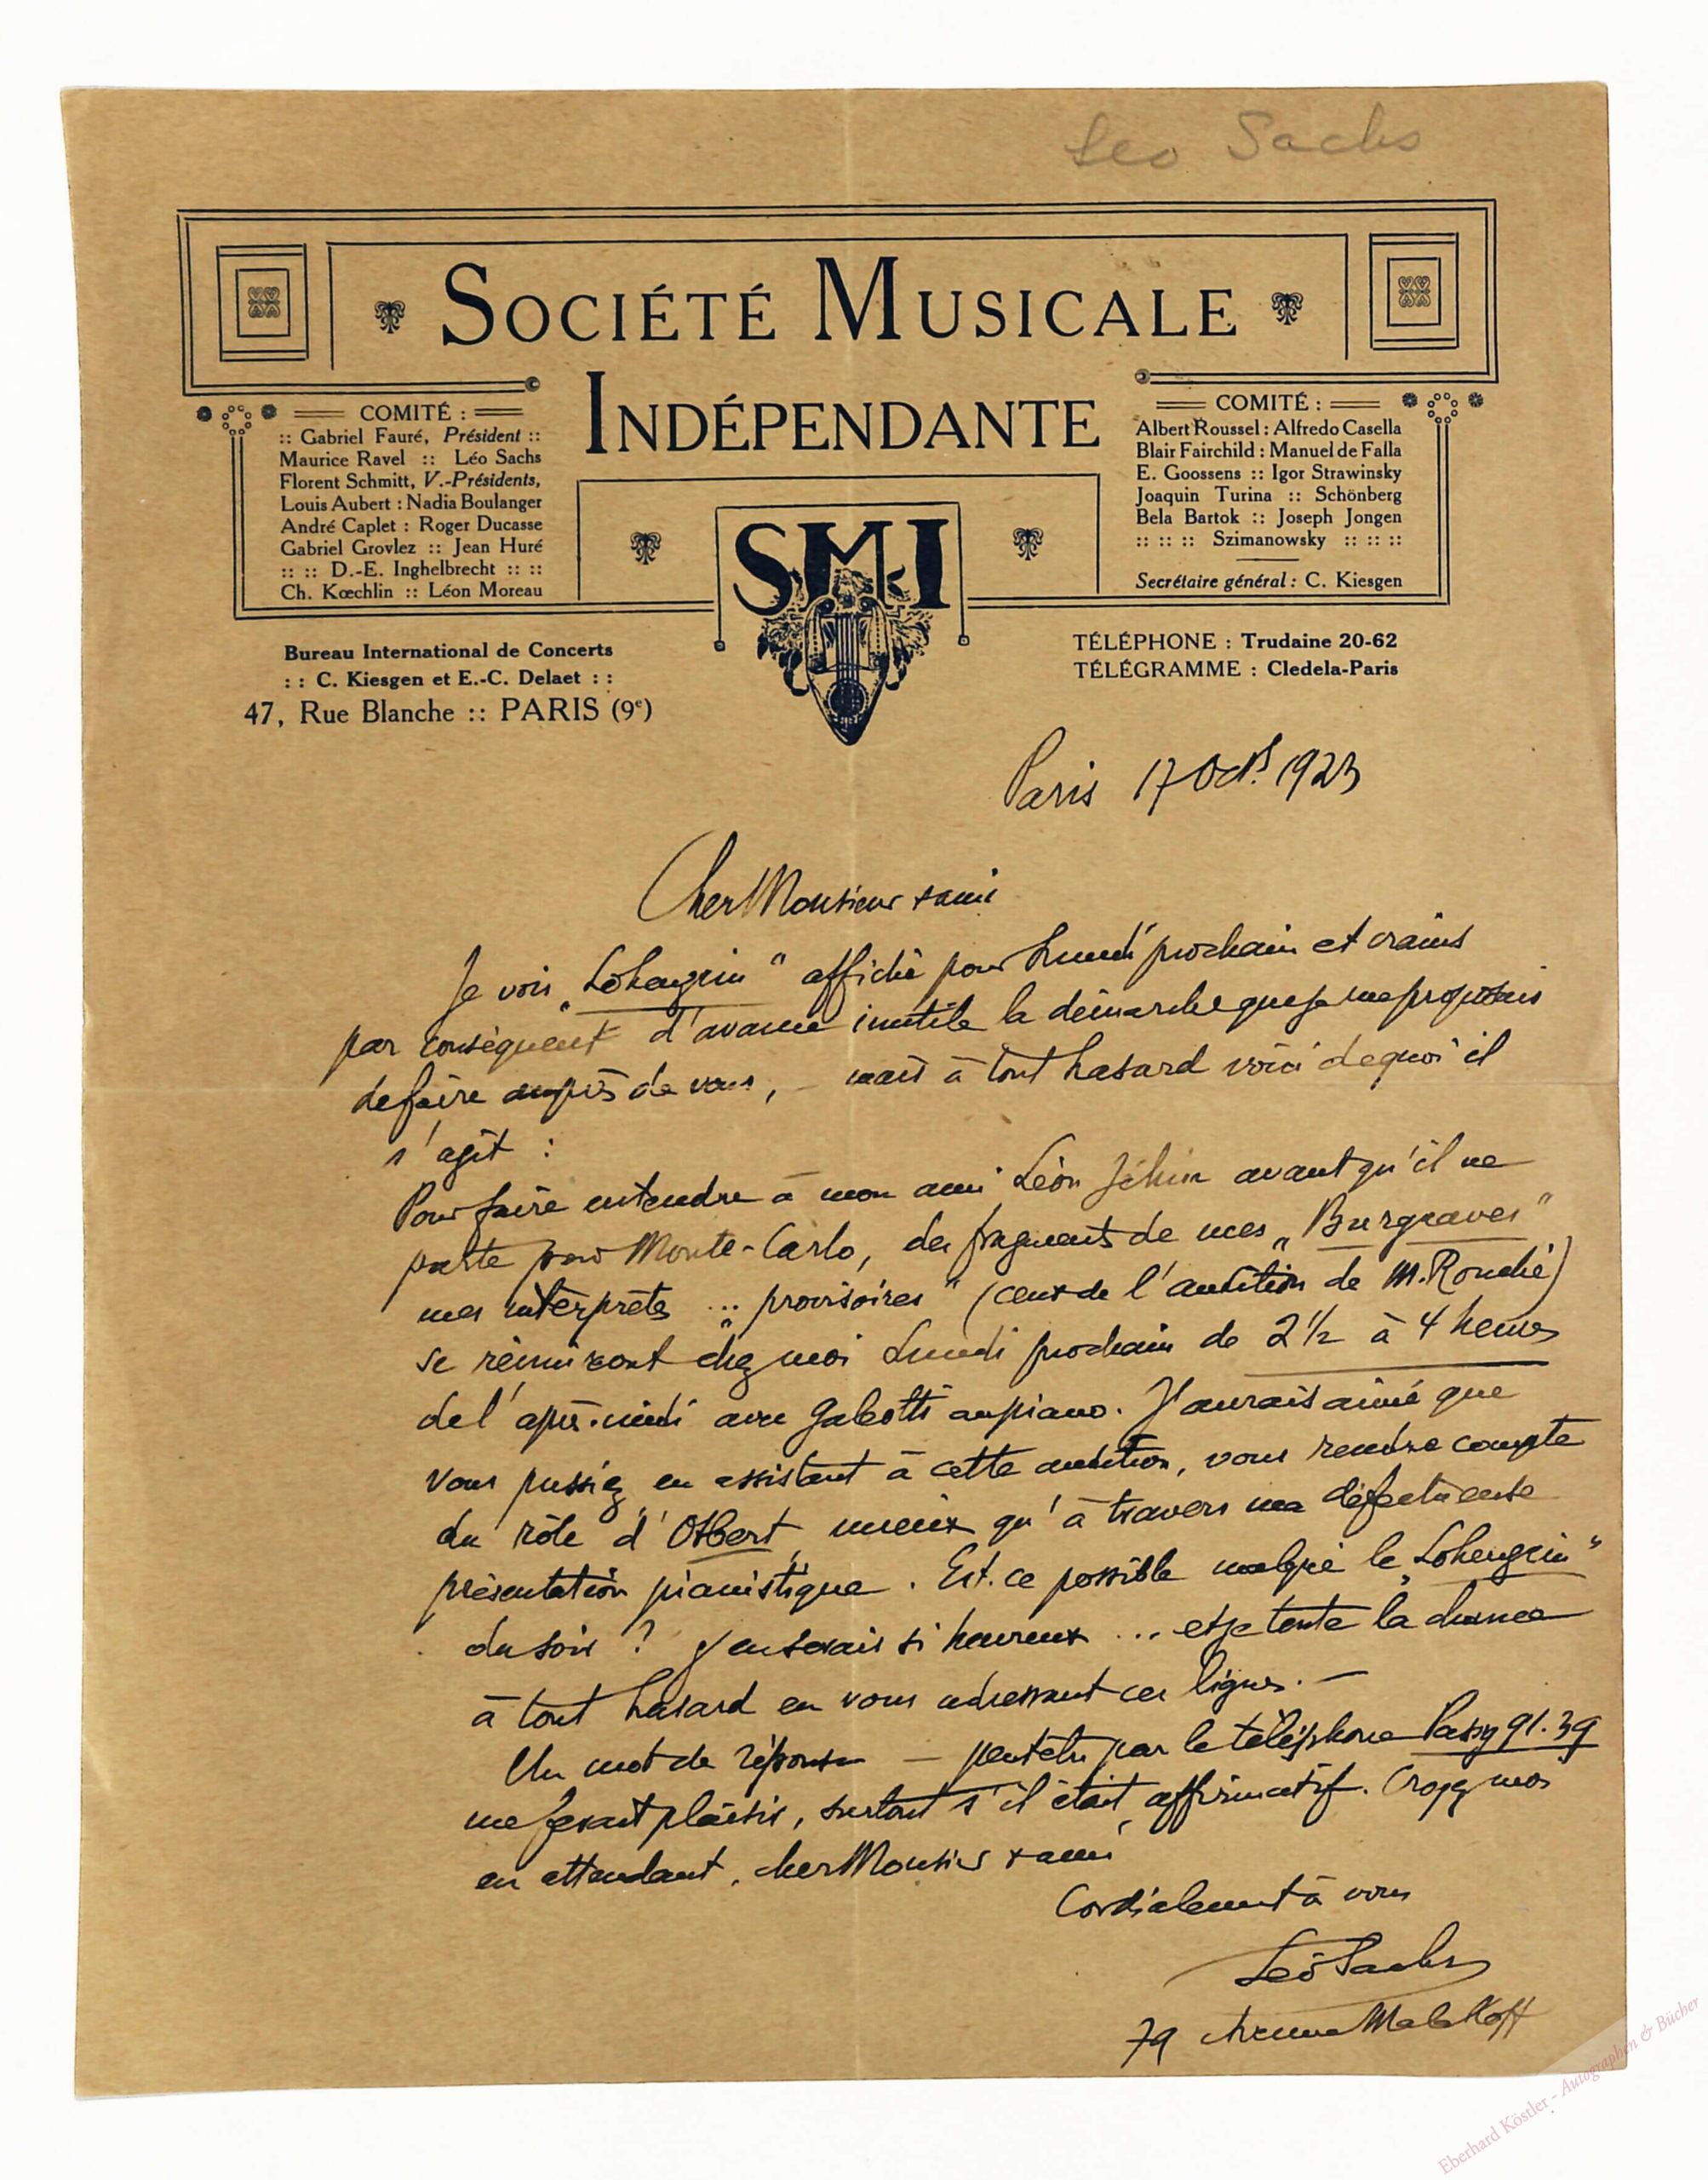 Leo Sachs
SOCIÉTÉ MUSICALE
INDÉPENDANTE
COMITÉ :
:: Gabriel Fauré, Président ::
Maurice Ravel :: Léo Sachs
Florent Schmitt, V.-Présidents,
Louis Aubert : Nadia Boulanger
André Caplet : Roger Ducasse
Gabriel Grovlez :: Jean Huré
:: :: D.-E. Inghelbrecht :: ::
Ch. Kœchlin :: Léon Moreau
COMITÉ :
Albert Roussel : Alfredo Casella
Blair Fairchild : Manuel de Falla
E. Goossens :: Igor Strawinsky
Joaquin Turina :: Schönberg
Bela Bartok :: Joseph Jongen
:: :: :: Szimanowsky :: :: ::
Secrétaire général : C. Kiesgen
SMI
Bureau International de Concerts
: : C. Kiesgen et E.-C. Delaet : :
47, Rue Blanche :: PARIS (9e)
TÉLÉPHONE : Trudaine 20-62
TÉLÉGRAMME : Cledela-Paris
Paris 17 Oct. 1923
Cher Monsieur & ami
Je vois „Lohengrin" affiché pour Lundi prochain et crains
par conséquent d'avance inutile la démarche que je me proposais
de faire auprès de vous, – mais à tout hasard voici de quoi il
s'agit :
Pour faire entendre à mon ami Léon Jéhin avant qu'il ne
parte pour Monte-Carlo, des fragments de mes „Burgraves"
mes interprètes ... „provisoires" (ceux de l'audition de M. Rouché)
se réuniront chez moi Lundi prochain de 2 1/2 à 4 heures
de l'après-midi avec Galeotti au piano. J'aurais aimé que
vous pussiez en assistant à cette audition, vous rendre compte
du rôle d'Otbert, mieux qu'à travers ma défectueuse
présentation pianistique. Est-ce possible malgré le „Lohengrin"
du soir ? J'en serais si heureux ... et je tente la chance
à tout hasard en vous adressant ces lignes. –
Un mot de réponse – peut-être par le téléphone Passy 91.39
me ferait plaisir, surtout s'il était affirmatif. Croyez moi
en attendant, cher Monsieur & ami
Cordialement à vous
Léo Sachs
79 Avenue Malakoff
Eberhard Köstler - Autographen & Bücher